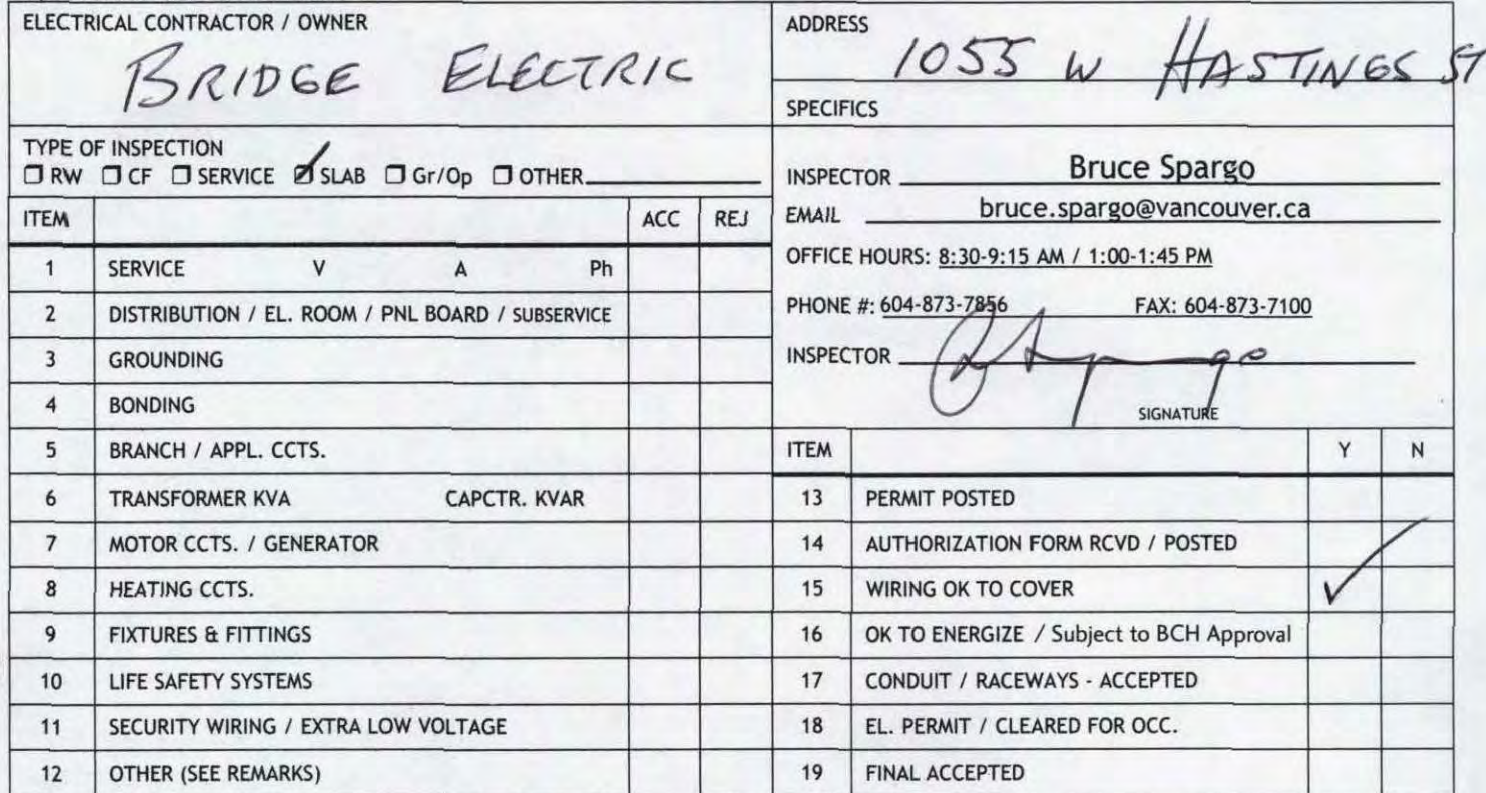 ELECTRICAL CONTRACTOR / OWNER
BRIDGE ELECTRIC
TYPE OF INSPECTION
RW CF SERVICE SLAB Gr/Op OTHER
ITEM ACC REJ
1 SERVICE V A Ph
2 DISTRIBUTION / EL. ROOM / PNL BOARD / SUBSERVICE
3 GROUNDING
4 BONDING
5 BRANCH / APPL. CCTS.
6 TRANSFORMER KVA CAPCTR. KVAR
7 MOTOR CCTS. / GENERATOR
8 HEATING CCTS.
9 FIXTURES & FITTINGS
10 LIFE SAFETY SYSTEMS
11 SECURITY WIRING / EXTRA LOW VOLTAGE
12 OTHER (SEE REMARKS)
ADDRESS
1055 W HASTINGS ST
SPECIFICS
INSPECTOR Bruce Spargo
EMAIL bruce.spargo@vancouver.ca
OFFICE HOURS: 8:30-9:15 AM / 1:00-1:45 PM
PHONE #: 604-873-7856 FAX: 604-873-7100
INSPECTOR
SIGNATURE
ITEM Y N
13 PERMIT POSTED
14 AUTHORIZATION FORM RCVD / POSTED
15 WIRING OK TO COVER
16 OK TO ENERGIZE / Subject to BCH Approval
17 CONDUIT / RACEWAYS - ACCEPTED
18 EL. PERMIT / CLEARED FOR OCC.
19 FINAL ACCEPTED